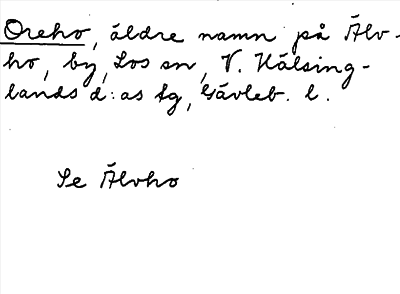 Oreho, äldre namn på Älv-
ho, by, Los sn, V. Hälsing-
lands d:as tg, Gävleb. l.
Se Älvho